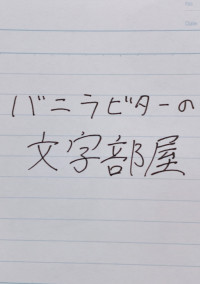 バニラビターの
文字部屋